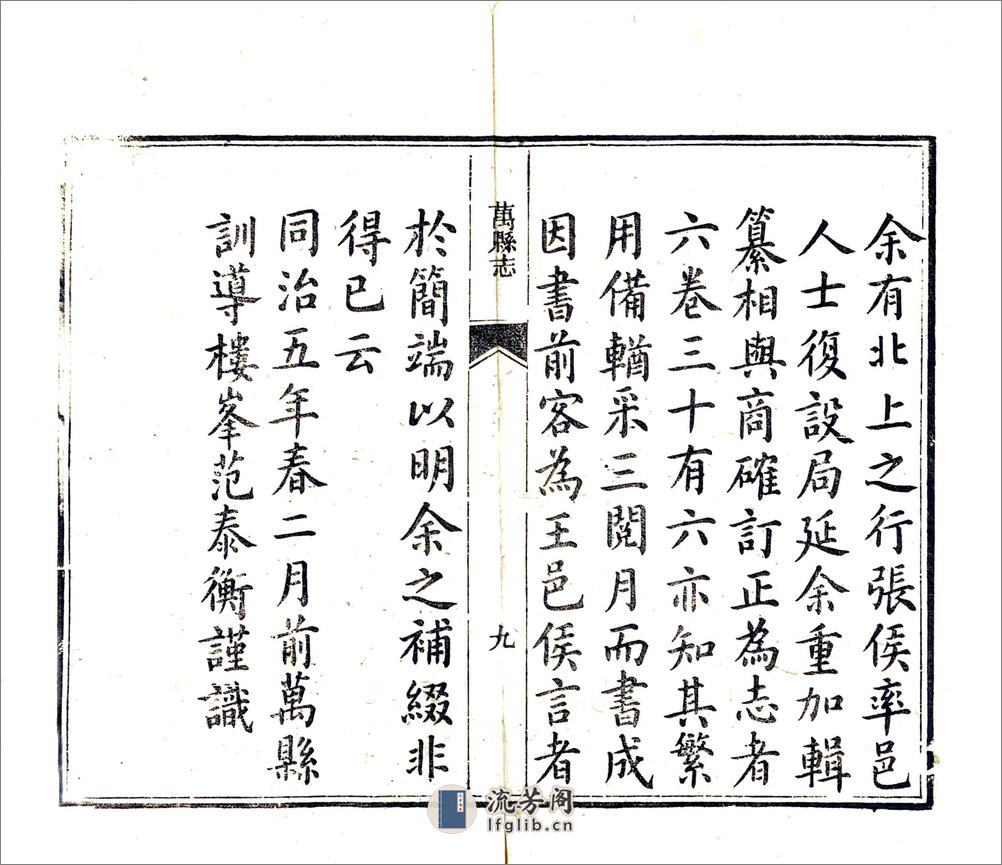 余有北上之行張侯率邑
人士復設局延余重加輯
纂相與商確訂正為志者
六卷三十有六亦知其繁
用備輶采三閱月而書成
因書前客為王邑侯言者
萬縣志
九
於簡端以明余之補綴非
得已云
同治五年春二月前萬縣
訓導樓峯范泰衡謹識
流芳阁
lfglib.cn